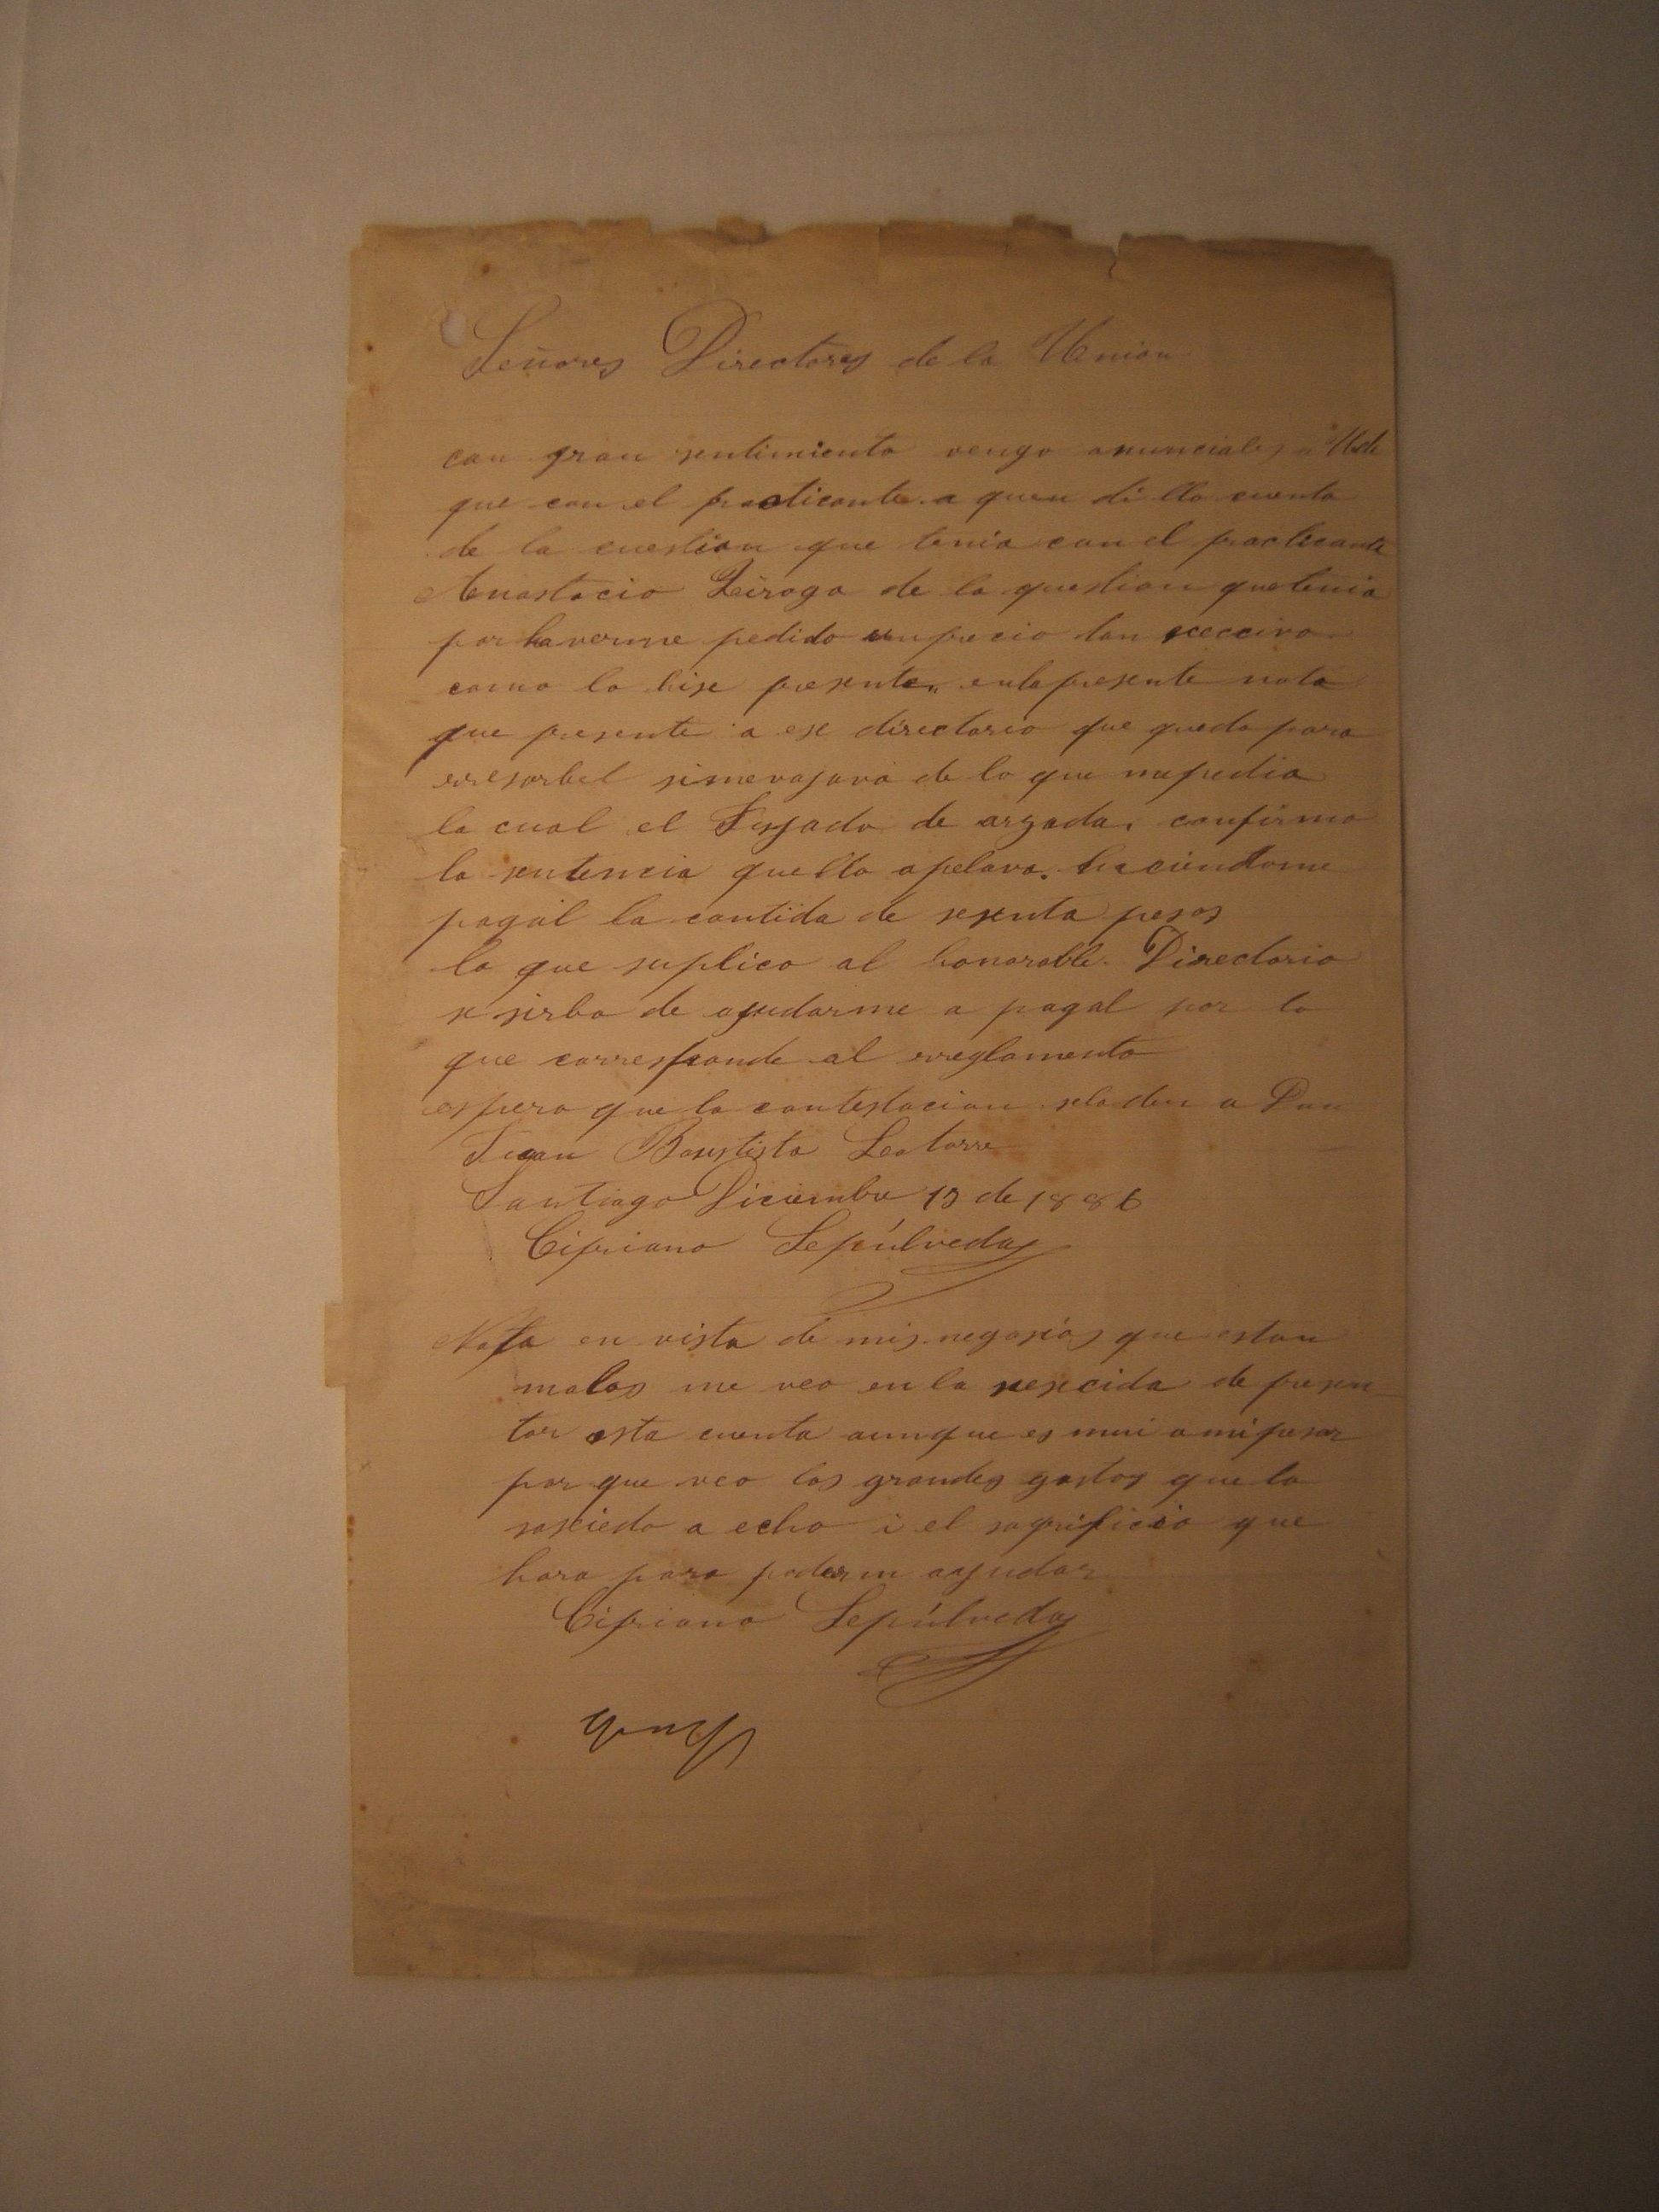 Señores Directores de la Union
con gran sentimiento vengo anunciales a Uds
que con el practicante a quien di llo cuenta
de la cuestion que tenia con el practicante
Anastacio de la questian que tenia
por haverme pedido un precio tan
como lo hise presente en la presente nota
que presente a ese directorio que quedo para
erresorbel si me vajava de lo que me pedia
la cual el Jusgado de confirmo
la sentencia que llo apelava. haciendome
pagal la cantida de sesenta pesos
lo que suplico al honorable Directorio
se sirba de ayudarme a pagal por lo
que corresponde al erreglamento
espero que la contestacion se la den a Don
Juan Bautista Leatorre
Santiago Diciembre de 1886
Cipriano Sepúlveda
Nota en vista de mis negosios que estan
malos me veo en la nesecida de presen-
tar esta cuenta aunque es mui a mi pesar
por que veo los grandes gastos que la
sosieda a echo i el sagrificio que
hara para poderm ayudar
Cipriano Sepúlveda